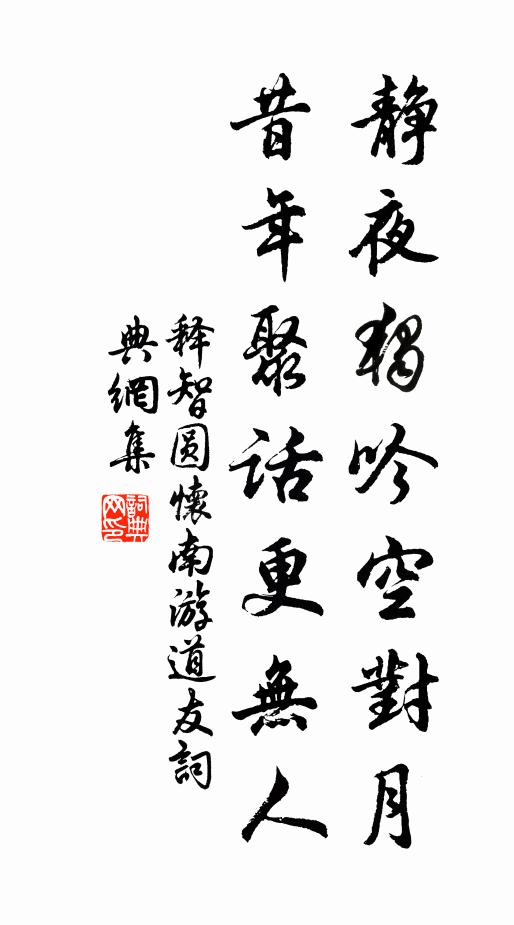 靜夜獨吟空對月
昔年聚話更無人
释智圆懷南游道友詞
典網集
詞典网印